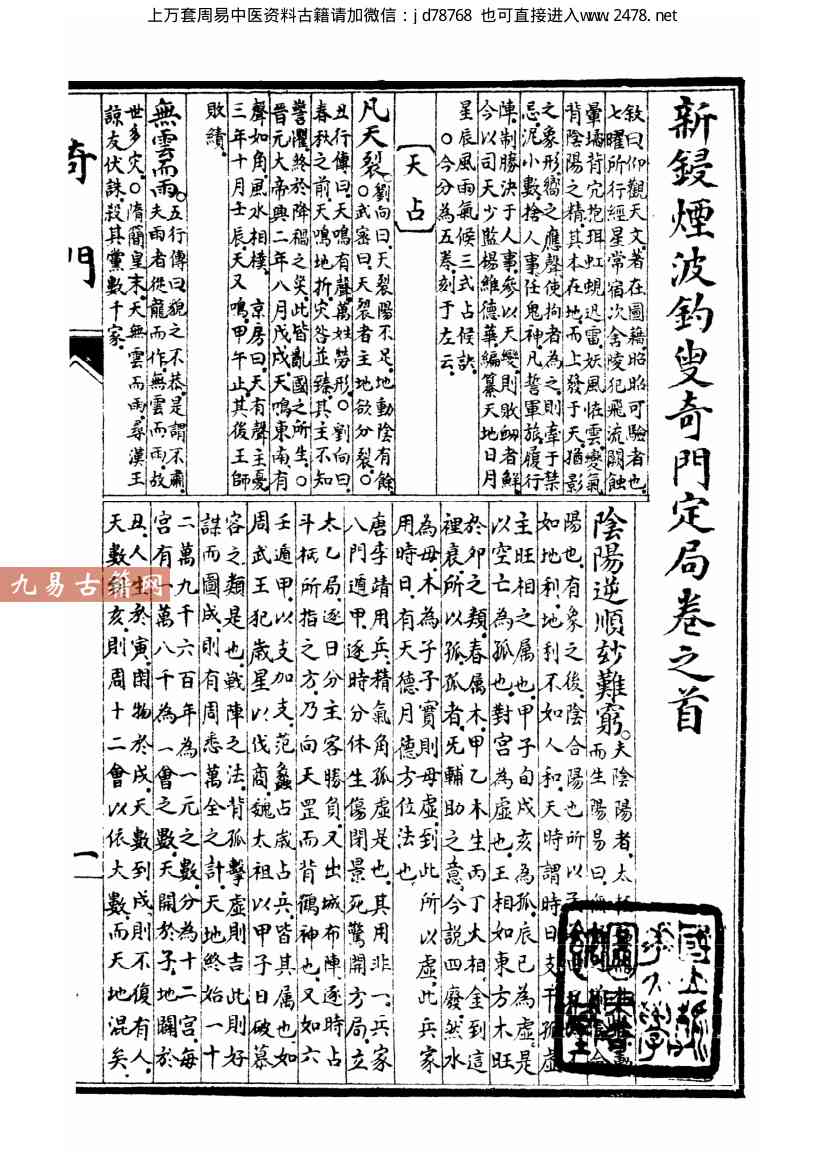 上万套周易中医资料古籍请加微信：jd78768 也可直接进入www.2478.net
新鋟煙波釣叟奇門定局卷之首
敘曰仰觀天文著在圖籍昭昭可驗者也
七曜所行經星常宿次舍陵犯飛流闘蝕
暈墧背穴抱珥虹蜺迅雷妖風怪雲變氣
背陰陽之精其本在地而上發于天猶影
之象形響之應聲使拘者為之則牽于禁
忌泥小數捨人事任鬼神凡誓軍旅履行
陣制勝決于人事參以天變則敗衂者鮮
今以司天少監楊維德華編纂天地日月
星辰風雨氣候三式占候訣
○今分為五卷刻于左云
天占
凡天裂劉向曰天裂陽不足地動陰有餘
○武密曰天裂者主地欲分裂○
丑行傳曰天鳴有聲萬姓勞形○劉向曰
春秋之前天鳴地折灾咎並臻其主不知
警懼終於降禍之癸此皆亂國之所生○
晋元大帝興二年八月戊戌天鳴東南有
聲如角風水相樸 京房曰天有聲主憂
三年十月壬辰天又鳴甲午止其後王師
敗績
無雲而雨○五行傳曰貌之不恭是謂不肅
夫雨者從龍而作無雲而雨故
世多灾○隋簡皇末天無雲而雨尋漢王
諒友伏誅殺其黨數千家
陰陽逆順玅難窮○夫陰陽者太
而生陽易曰
陽也有象之後陰合陽也所以
如地利地利不如人和天時謂時日支干孤虛
主旺相之属也甲子旬戌亥為孤辰已為虛是
以空亡為孤也對宮為虛也王相如東方木旺
於卯之類春属木甲乙木生丙丁火相金到這
裡衰所以孤孤者旡輔助之意今說四廢然水
為母木為子子實則母虛到此所以虛此兵家
用時日有天德月德方位法也
唐李靖用兵精氣角孤虛是也其用非一兵家
八門遁甲逐時分休生傷閉景死驚開方局立
太乙局逐日分主客勝負又出城布陣逐時占
斗柄所指之方乃向天罡而背鶴神也又如六
壬遁甲以支加支范蠡占歲占兵皆其属也如
周武王犯歲星以伐商魏太祖以甲子日破慕
容之類是也戰陣之法背孤擊虛則吉此則好
謀而圖成則有周悉萬全之計天地終始一十
二萬九千六百年為一元之數分為十二宮每
宮有一萬八千為一會之數天開於子地闢於
丑人生於寅開物於戌天數到戌則不復有人
天數籍亥則周十二會以依大數而天地混矣
奇門
一
九易古籍网